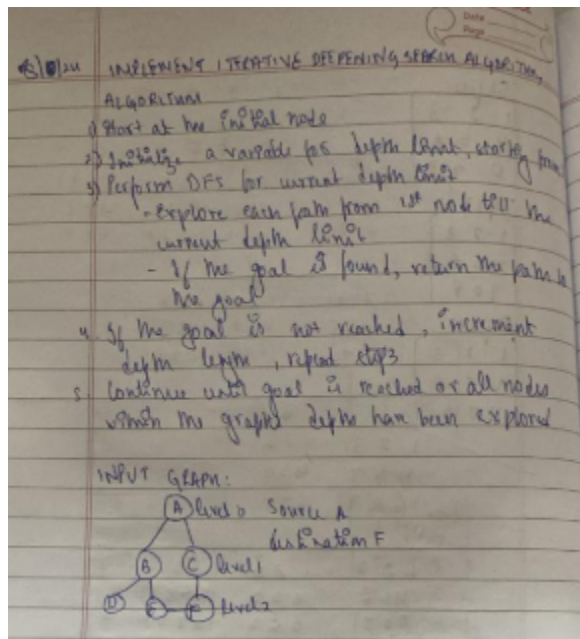 Date
Page
IMPLEMENT ITERATIVE DEEPENING SEARCH ALGORITHM
ALGORITHM
1) Start at the initial node
2) Initialize a variable for depth limit, starting from
3) Perform DFS for current depth limit
- Explore each path from 1st node till the
current depth limit
- If the goal is found, return the path to
the goal
4. If the goal is not reached, increment
depth length, repeat step 3
5. Continue until goal is reached or all nodes
within the graphs depths have been explored
INPUT GRAPH:
A level 0 Source A
destination F
B C level 1
D E F level 2